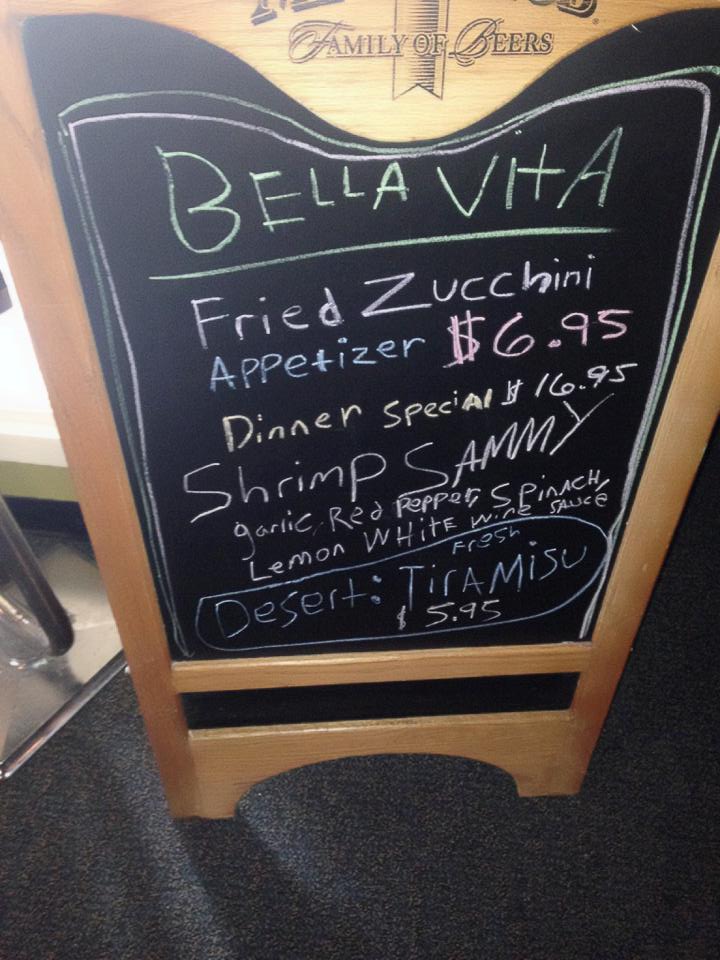 FAMILY OF BEERS
BELLA VITA
Fried Zucchini
Appetizer $6.95
Dinner Special $16.95
Shrimp SAMMY
garlic, Red pepper, SPINACH,
Lemon WHITE wine SAUCE
Fresh
Desert: TIRAMISU
$5.95